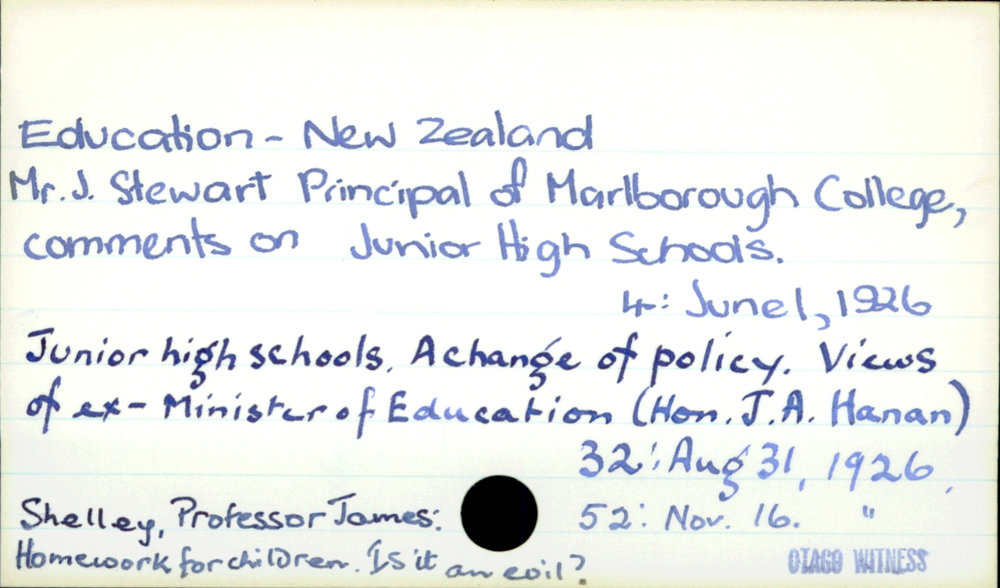 Education - New Zealand
Mr. J. Stewart Principal of Marlborough College,
comments on Junior High Schools.
4: June 1, 1926
Junior high schools. A change of policy. Views
of ex-Minister of Education (Hon. J.A. Hanan)
32: Aug 31, 1926.
Shelley, Professor James: 52: Nov. 16. "
Homework for children. Is it an evil?
OTAGO WITNESS